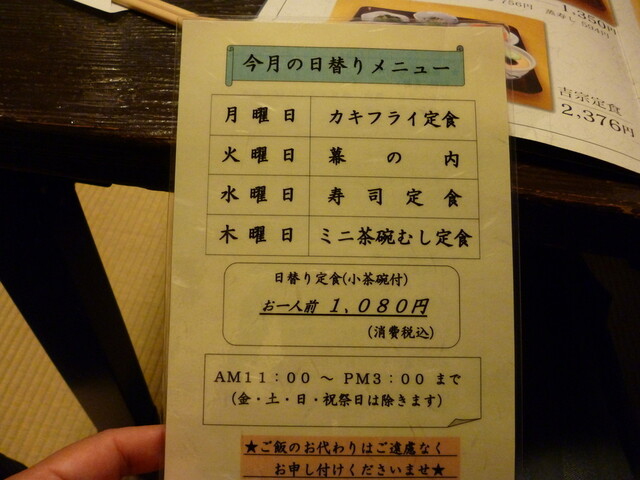 今月の日替りメニュー
月曜日 カキフライ定食
火曜日 幕の内
水曜日 寿司定食
木曜日 ミニ茶碗むし定食
日替り定食(小茶碗付)
お一人前 1,080円
(消費税込)
AM11:00 ~ PM3:00 まで
(金・土・日・祝祭日は除きます)
★ご飯のお代わりはご遠慮なく
お申し付けくださいませ★
756円
1,350円
蒸寿し 594円
吉宗定食
2,376円